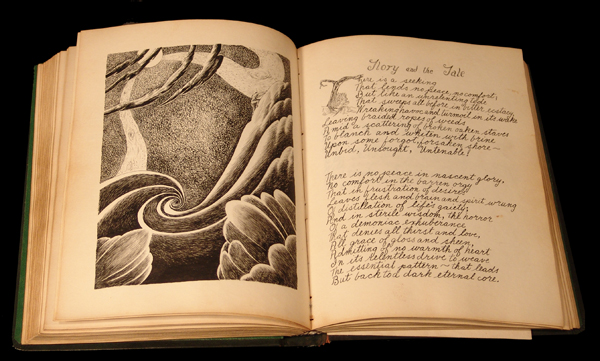 Story and the Tale
There is a seeking
That lends no peace, no comfort;
But like an unrelenting tide
That sweeps all before in bitter ecstacy
Wreaking havoc and turmoil in its wake
Leaving braided ropes of weeds
Amid a scattering of broken oaken staves
To blanch and whiten with brine
Upon some forgot, forsaken shore ~
Unbid, Unsought, Untenable!
There is no peace in nascent glory,
No comfort in the barren orgy
That in frustration of desires
Leaves flesh and brain and spirit wrung
A distillation of life's gaiety;
And in sterile wisdom, the horror
Of a demoniac exhuberance
That denies all thirst and love,
All grace of gloss and sheen,
Admitting of no warmth of heart
In its relentless drive to weave
The essential pattern ~ that leads
But back to a dark eternal core.